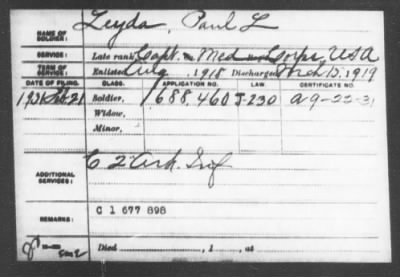 NAME OF SOLDIER: Leyda, Paul L
SERVICE: Late rank Capt. Med Corps, USA
TERM OF SERVICE: Enlisted Aug, 1918 Discharged Mch 15, 1919
DATE OF FILING. CLASS. APPLICATION NO. LAW. CERTIFICATE NO.
1931 21 Soldier, 1688,460 J-230 a 9-22-31
Widow,
Minor,
ADDITIONAL SERVICES: C 2 Ark. Inf
REMARKS: C 1 677 898
Died , 1 , at